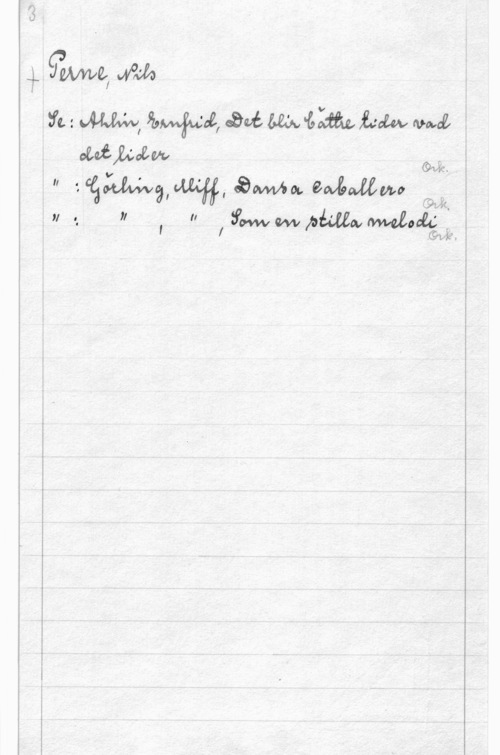 3
+ Perne, Nils
Se: Ahlin, Ernfrid, Det blir bättre tider vad
det lider
Ork.
" : Görling, Uliff, Dansa Caballero
Ork.
" : " , " , Som en stilla melodi
Ork.